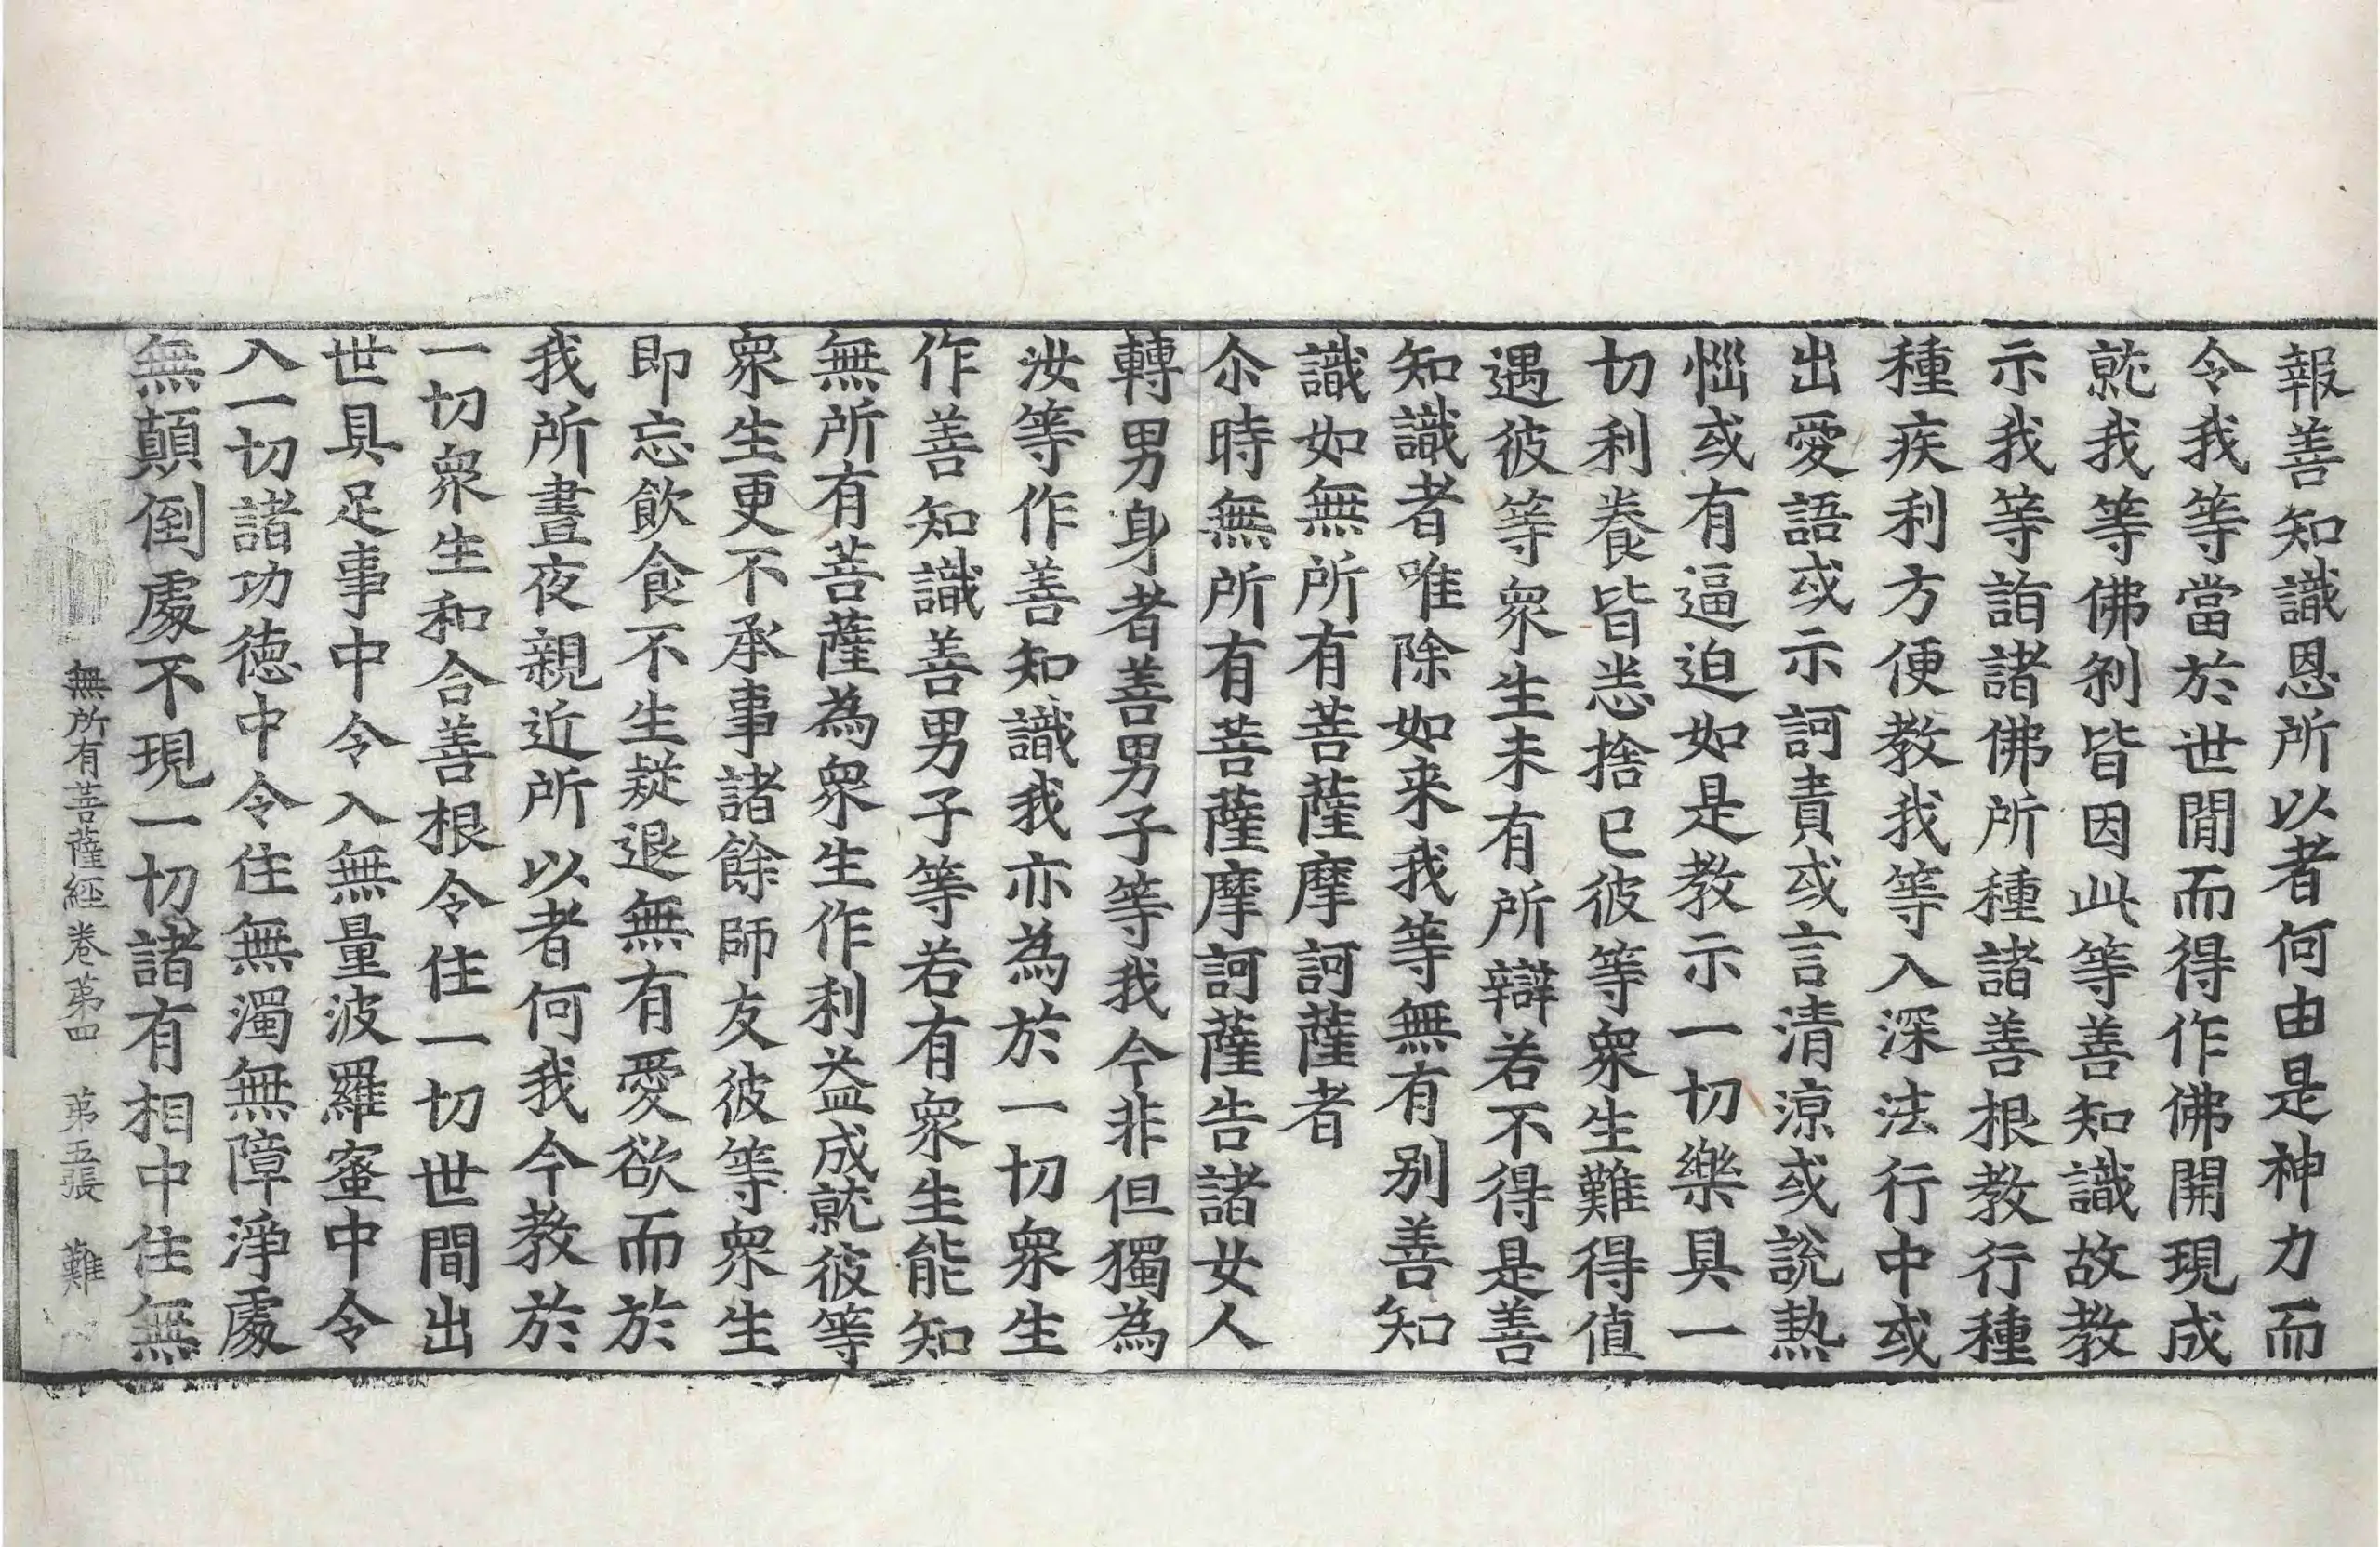 報善知識恩所以者何由是神力而
令我等當於世間而得作佛開現成
就我等佛刹皆因此等善知識故教
示我等詣諸佛所種諸善根教行種
種疾利方便教我等入深法行中或
出愛語或示訶責或言清涼或説熱
惱或有逼迫如是教示一切樂具一
切利養皆悉捨已彼等衆生難得值
遇彼等衆生未有所辯若不得是善
知識者唯除如来我等無有別善知
識如無所有菩薩摩訶薩者
尒時無所有菩薩摩訶薩告諸女人
轉男身者善男子等我今非但獨為
汝等作善知識我亦為於一切衆生
作善知識善男子等若有衆生能知
無所有菩薩為衆生作利益成就彼等
衆生更不承事諸餘師友彼等衆生
即忘飲食不生疑退無有愛欲而於
我所晝夜親近所以者何我今教於
一切衆生和合善根令住一切世間出
世具足事中令入無量波羅蜜中令
入一切諸功徳中令住無濁無障淨處
無顛倒處不現一切諸有相中住無
無所有菩薩經卷苐四 苐五張 難